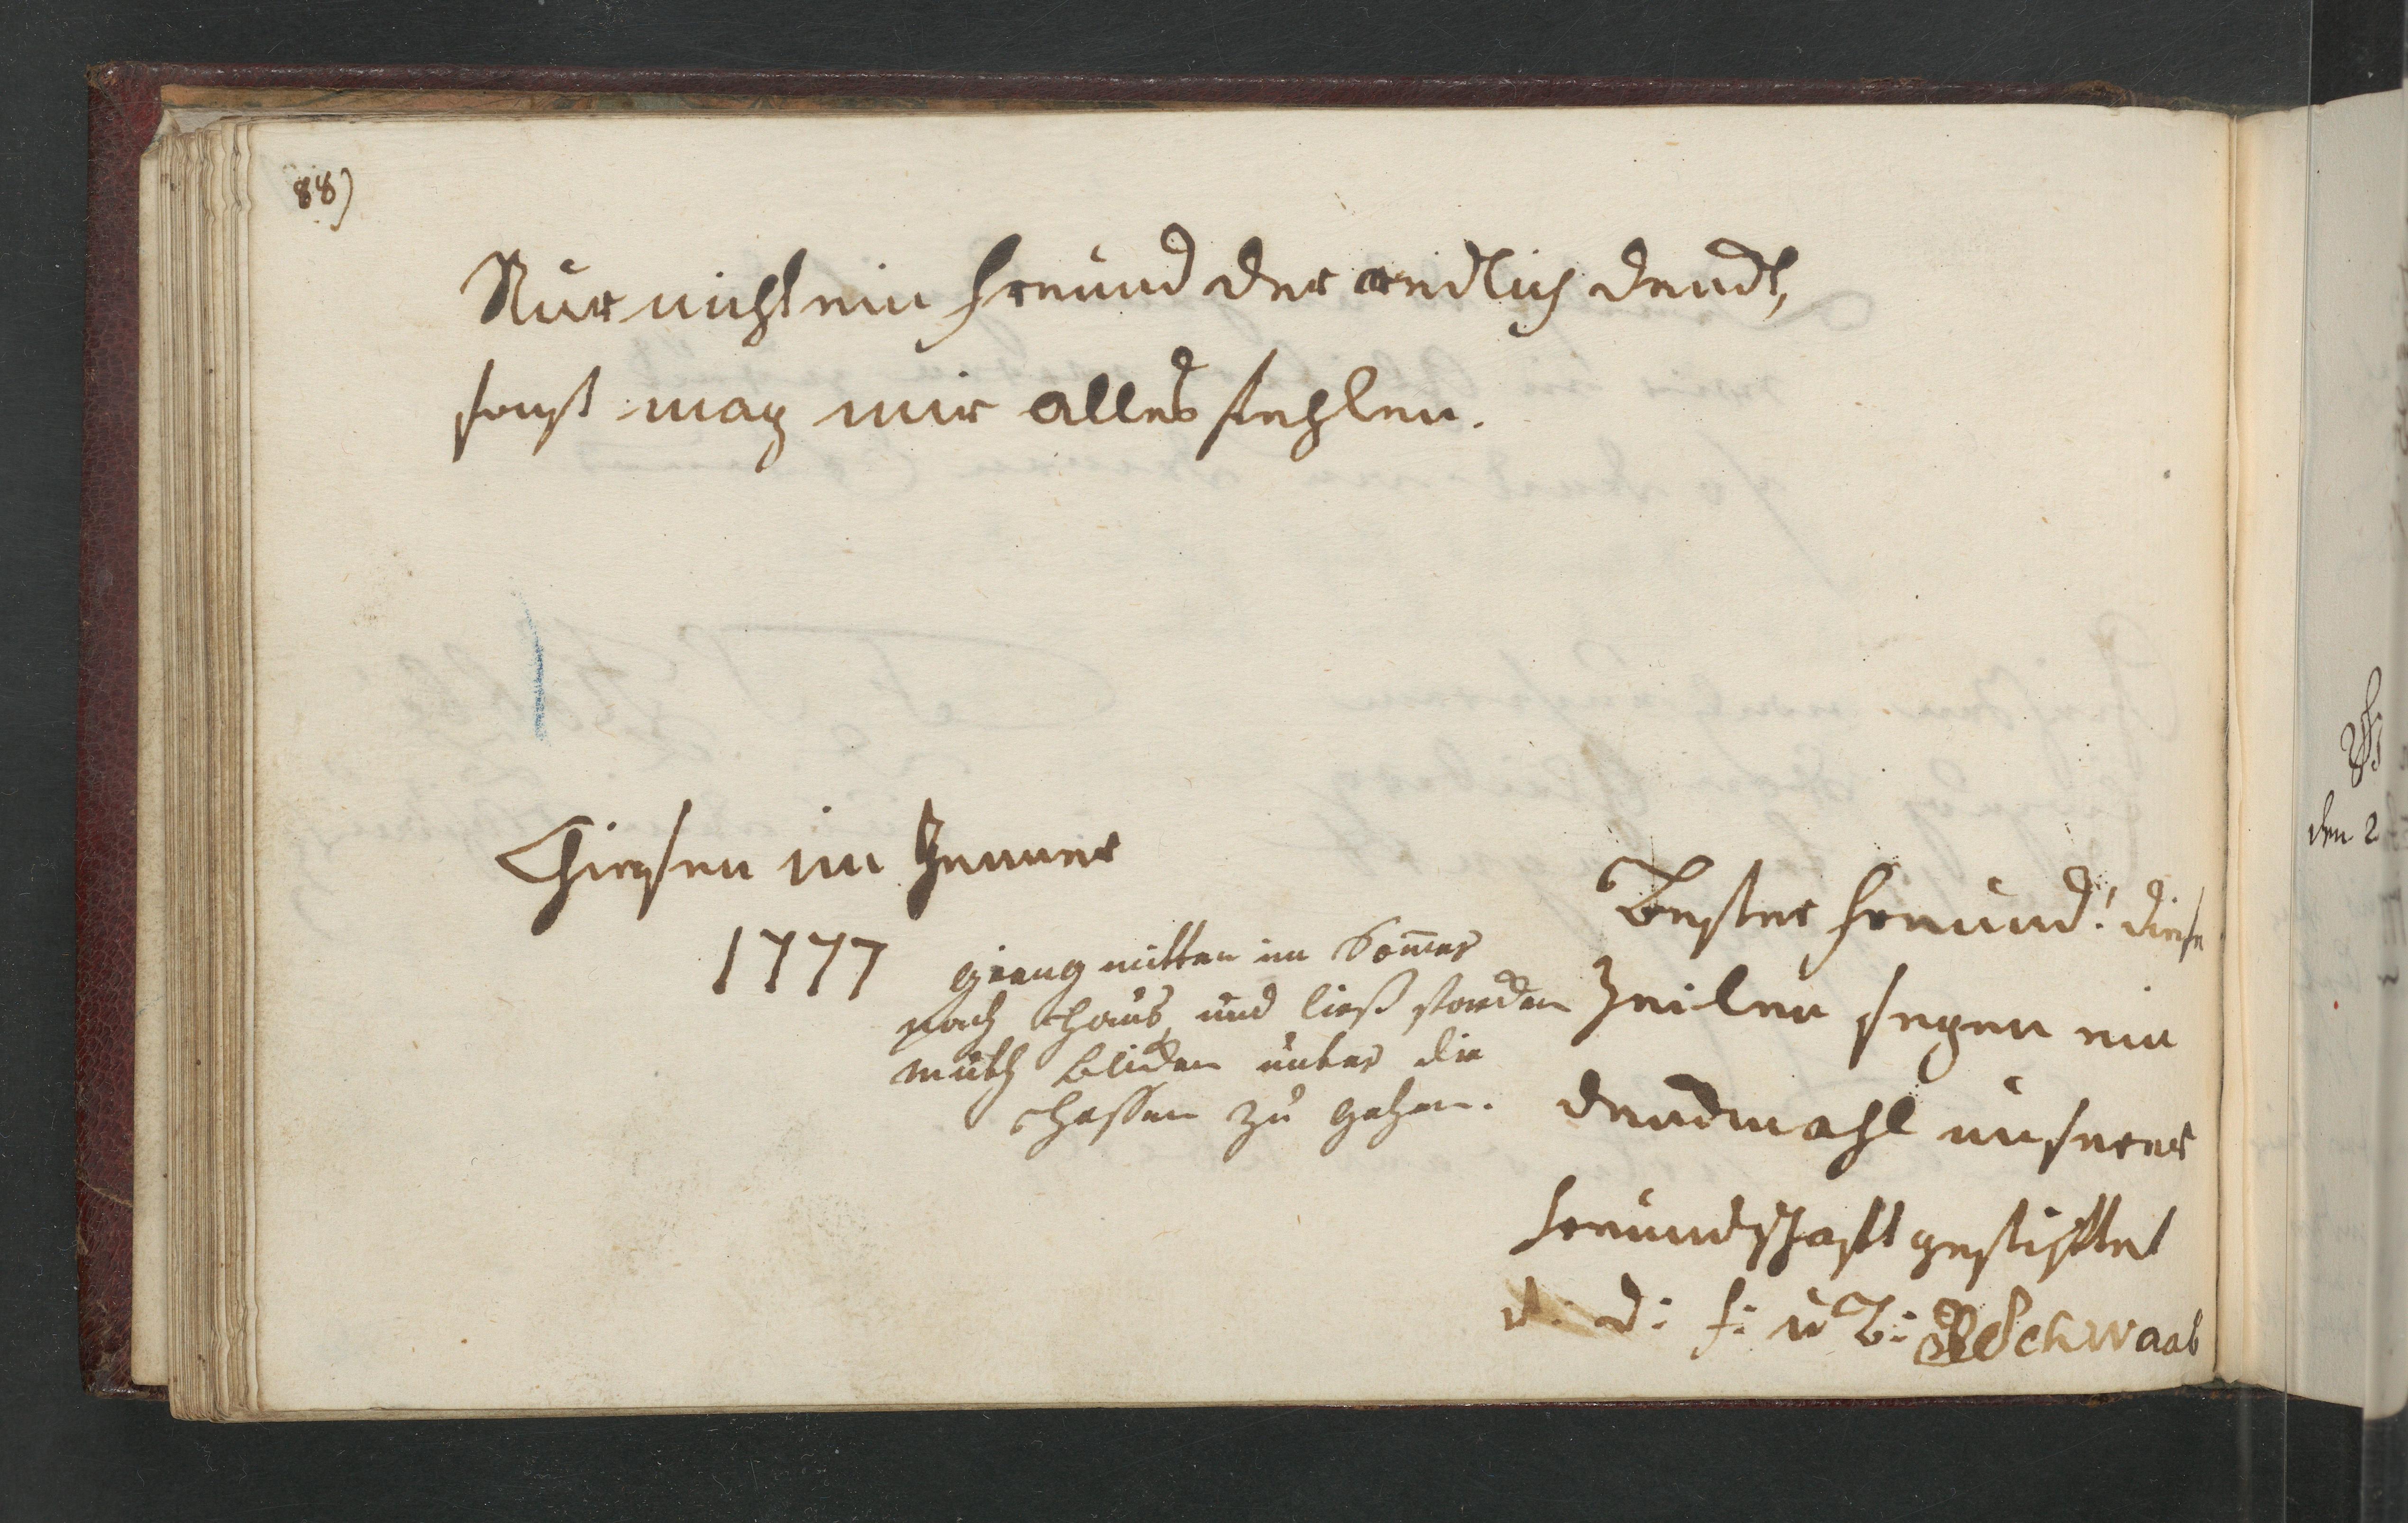 88)
Nur nicht ein Freund der redlich denckt,
sonst mag mir alles fehlen.
Giesen im Jenner
1777
gieng mitten im Sommer
nach Haus und ließ
muth unter die
Hessen zu gehen.
Bester Freund! diese
Zeilen seyen ein
denckmahl unserer
Freundschafft gestifftet
v. d: F: u B: Schwaab
den 2